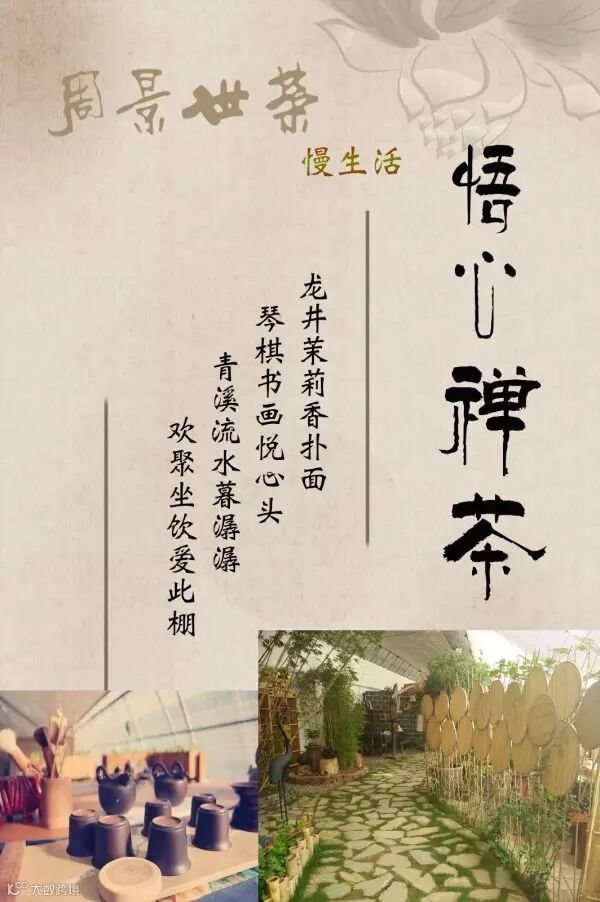 周景世荣
慢生活
悟心禅茶
龙井茉莉香扑面
琴棋书画悦心头
青溪流水暮潺潺
欢聚坐饮爱此棚
大数跨境